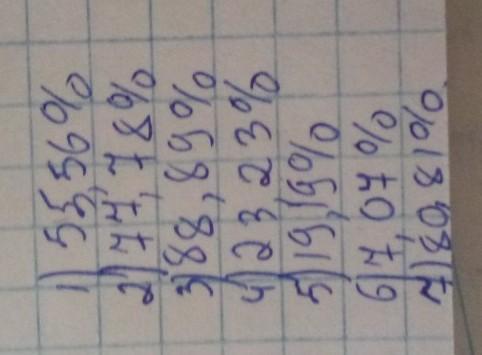 1) 55,56%
2) 77,78%
3) 88,89%
4) 23 23%
5) 19,19%
6 7,07%
7) 80,81%